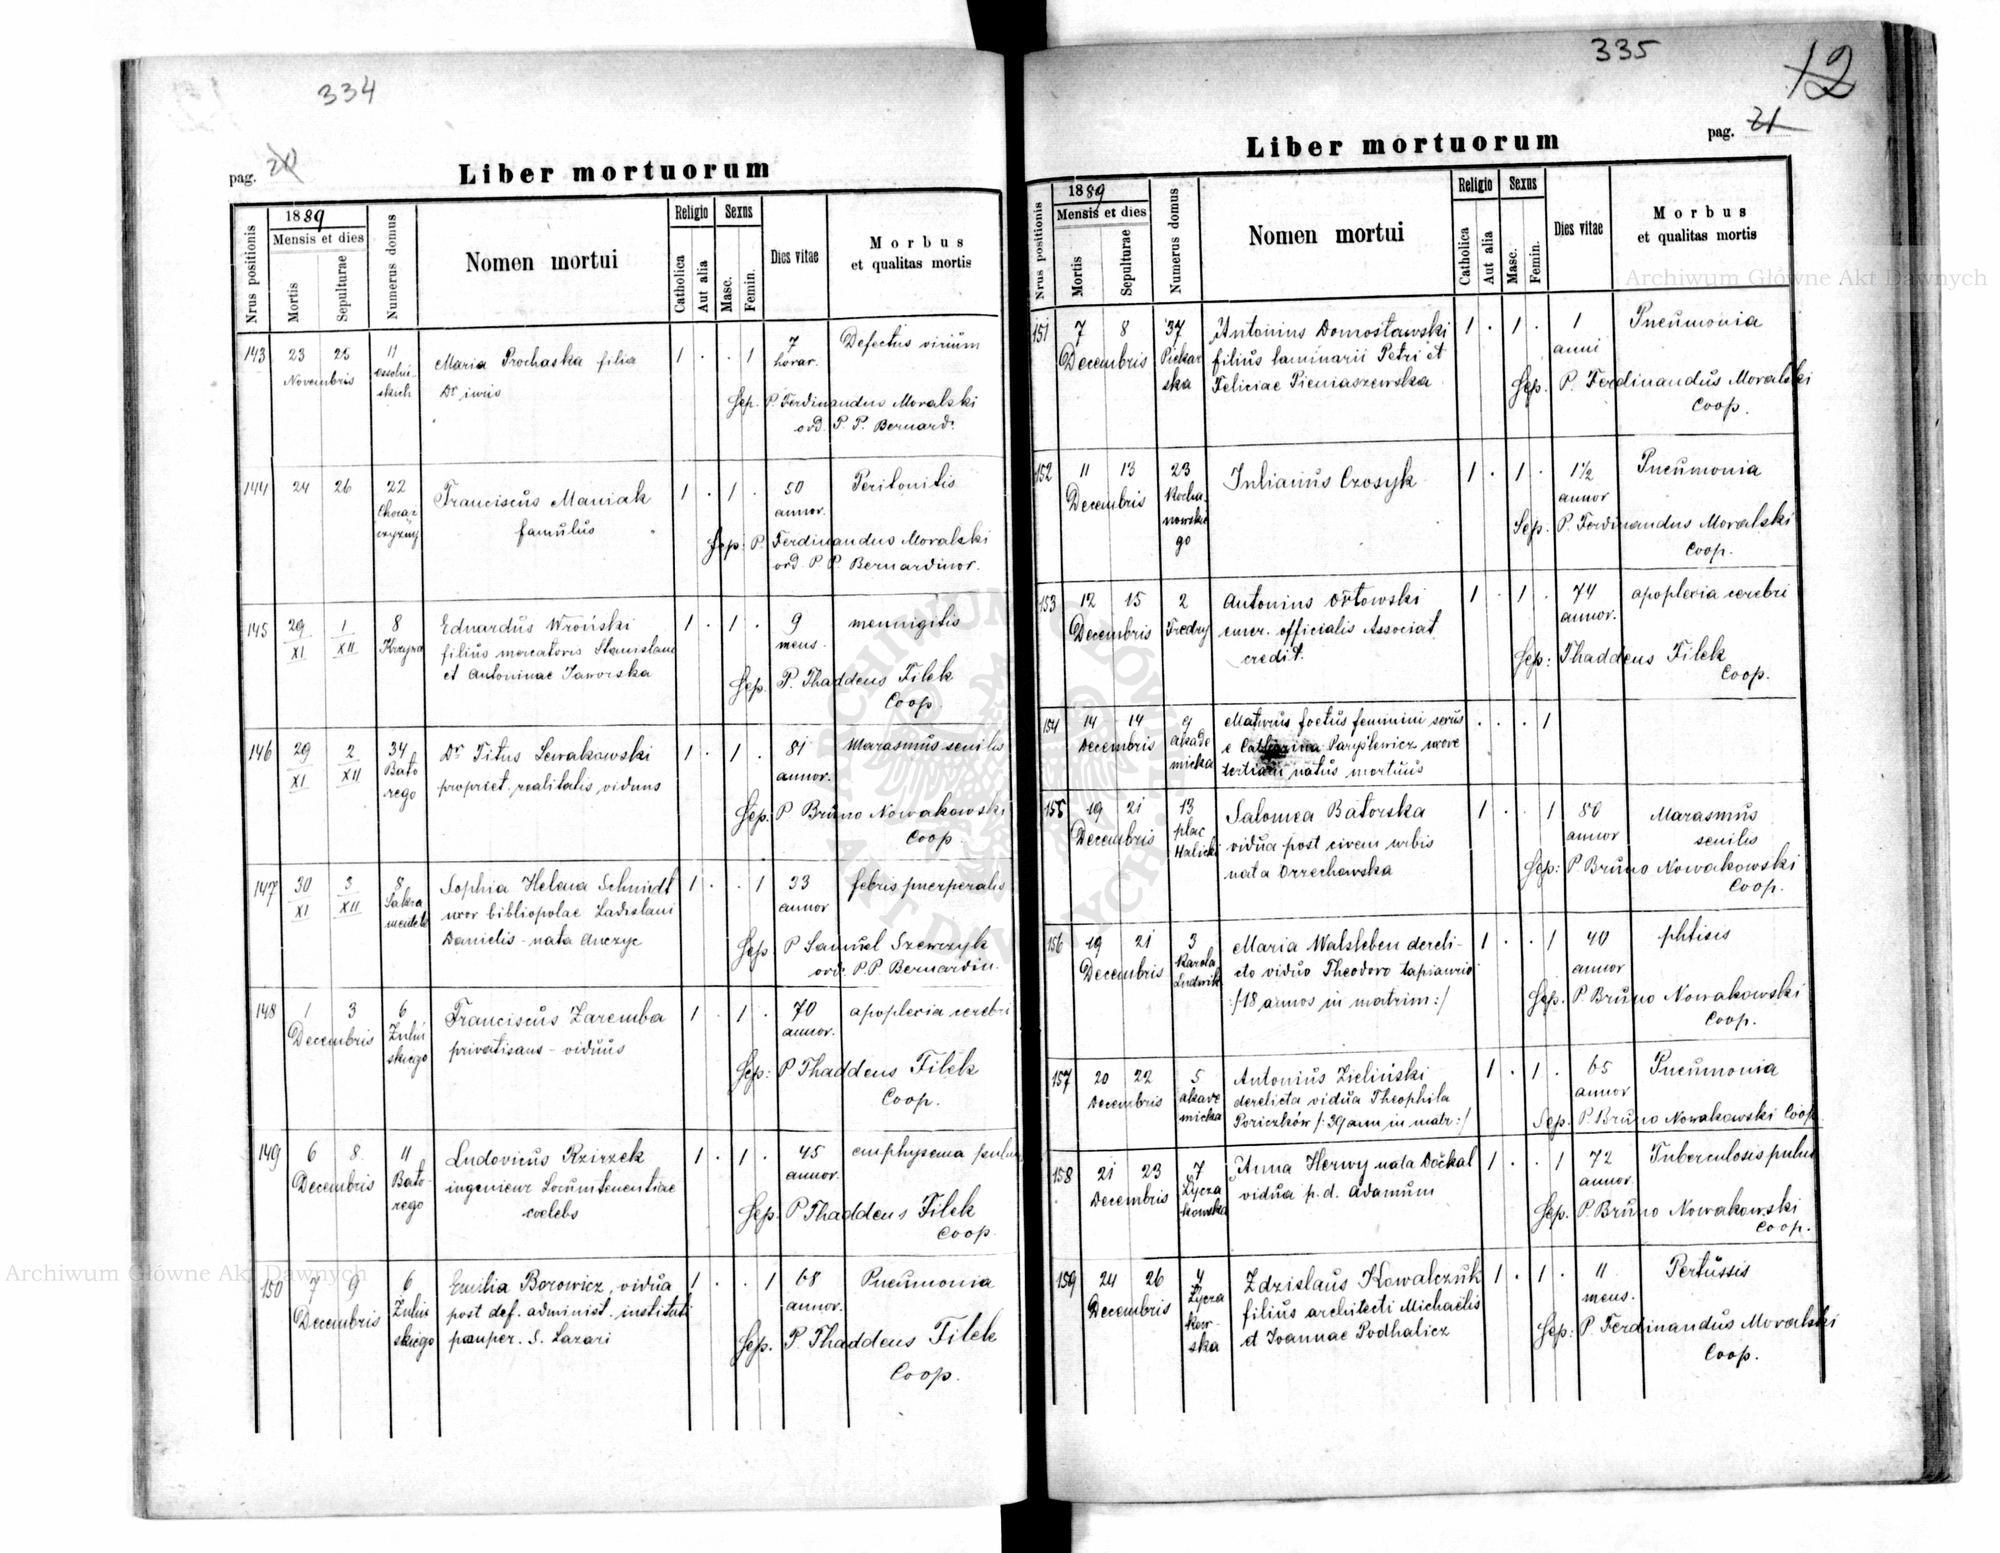 334
pag. 20
Liber mortuorum
Nrus positionis
1889
Mensis et dies
Mortis
Sepulturae
Numerus domus
Nomen mortui
Religio
Catholica
Aut alia
Sexus
Masc.
Femin.
Dies vitae
Morbus
et qualitas mortis
143 23 25 11 Maria Prochaska filia 1 . . 1 7 Defectus virium
Novembris Dris iuris horar.
Sep. P. Ferdinandus Moralski
ord. P. P. Bernard.
144 24 26 22 Franciscus Maniak 1 . 1 . 50 Peritonitis
famulus annor.
Sep: P. Ferdinandus Moralski
ord. P. P. Bernardinor.
145 29/XI 1/XII 8 Eduardus Wroński 1 . 1 . 9 mennigitis
filius mercatoris Stanislai mens.
et Antoninae Jaworska
Sep. P. Thaddeus Filek
Coop.
146 29/XI 2/XII 34 Dr Titus Lewakowski 1 . 1 . 81 Marasmus senilis
Batorego propriet. realitatis viduus annor.
Sep. P Bruno Nowakowski
Coop.
147 30/XI 3/XII 8 Sophia Helena Schmidt 1 . . 1 33 febris puerperalis
uxor bibliopolae Ladislai annor
Danielis - nata Anczyc
Sep. P Samuel Szewczyk
ord. P. P Bernardin.
148 1 3 6 Franciscus Zaremba 1 . 1 . 70 apoplexia cerebri
Decembris Zulińskiego privatisans - viduus annor.
Sep: P Thaddeus Filek
Coop.
149 6 8. 11 Ludovicus Rzirzek 1 . 1 . 45 emphysema pulm
Decembris Batorego ingenieur Locumtenentiae annor.
coelebs
Sep. P Thaddeus Filek
Coop.
150 7 9 6 Emilia Borowicz, vidua 1 . . 1 68 Pneumonia
Decembris Zulińskiego post def. administ. instituti annor.
pauper. S. Lazari
Sep. P. Thaddeus Filek
Coop.
335
12
pag. 21
Liber mortuorum
Nrus positionis
1889
Mensis et dies
Mortis
Sepulturae
Numerus domus
Nomen mortui
Religio
Catholica
Aut alia
Sexus
Masc.
Femin.
Dies vitae
Morbus
et qualitas mortis
151 7 8 37 Antonius Domosławski 1 . 1 . 1 Pneumonia
Decembris Piekarska filius laminarii Petri et anni
Feliciae Pieniaszewska
Sep. P. Ferdinandus Moralski
Coop.
152 11 13 23 Julianus Czosyk 1 . 1 . 1½ Pneumonia
Decembris Kochanowskiego annor
Sep. P. Ferdinandus Moralski
Coop.
153 12 15 2 Antonius Orłowski 1 . 1 . 74 apoplexia cerebri
Decembris Fredry emer. officialis Associat. annor.
credit.
Sep: Thaddeus Filek
Coop.
154 14 14 9 Maturus foetus feminini sexus . . . 1
Decembris akademicka e Catharina Paryslewicz uxore
natus mortuus
155 19 21 13 Salomea Batorska 1 . . 1 80 Marasmus
Decembris plac Halicki vidua post civem urbis annor senilis
nata Orzechowska
Sep: P Bruno Nowakowski
Coop.
156 19 21 3 Maria Walsleben dereli- 1 . . 1 40 phtisis
Decembris Karola Ludwik cto viduo Theodoro annor
/:18 annos in matrim:/
Sep. P. Bruno Nowakowski
Coop.
157 20 22 5 Antonius Zieliński 1 . 1 . 65 Pneumonia
Decembris akademicka derelicta vidua Theophila annor
/:39 ann in matr:/
Sep. P. Bruno Nowakowski Coop.
158 21 23 7 Anna Herwy nata Dočkal 1 . . 1 72 Tuberculosis pulm
Decembris Łyczakowska vidua p. d. Adamum annor.
Sep. P. Bruno Nowakowski
Coop.
159 24 26 4 Zdzislaus Kowalczuk 1 . 1 . 11 Pertussis
Decembris Łyczakowska filius architecti Michaelis mens.
et Joannae Podhalicz
Sep: P. Ferdinandus Moralski
Coop.
Archiwum Główne Akt Dawnych
Archiwum Główne Akt Dawnych
ARCHIWUM GŁÓWNE AKT DAWNYCH